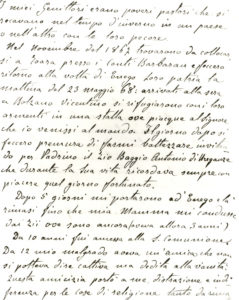 I miei Genitori erano poveri pastori che si
recavano nel tempo d'inverno in un paese
o nell'altro con le loro pecore
Nel Novembre del 1867 trovavano da collocar
si a Zoara presso i Conti Barbaran e fecero
ritorno alla volta di Enego loro patria la
mattina del 23 maggio 68: arrivati alla sera
a Bolzano Vicentino si rifugiarono coi loro
armenti in una stalla ove piacque al Signore
che io venissi al mondo. Il giorno dopo si
fecero premura di farmi battezzare, invitan
do per Padrino il zio Baggio Antonio di Breganze
che durante la sua vita ricordava sempre con
piacere quel giorno fortunato.
Dopo 8 giorni mi portarono ad Enego e là
rimasi fino che mia Mamma mi condusse
dai Zii ove sono ancora (aveva allora 3 anni)
Da 10 anni fui ammessa alla S. Comunione.
Da 12 mio malgrado aveva un'amica, che non
si poteva dire cattiva ma dedita alla vanità.
Questa amicizia portò a me distrazione e indif
ferenza per le cose di religione tanto da mia